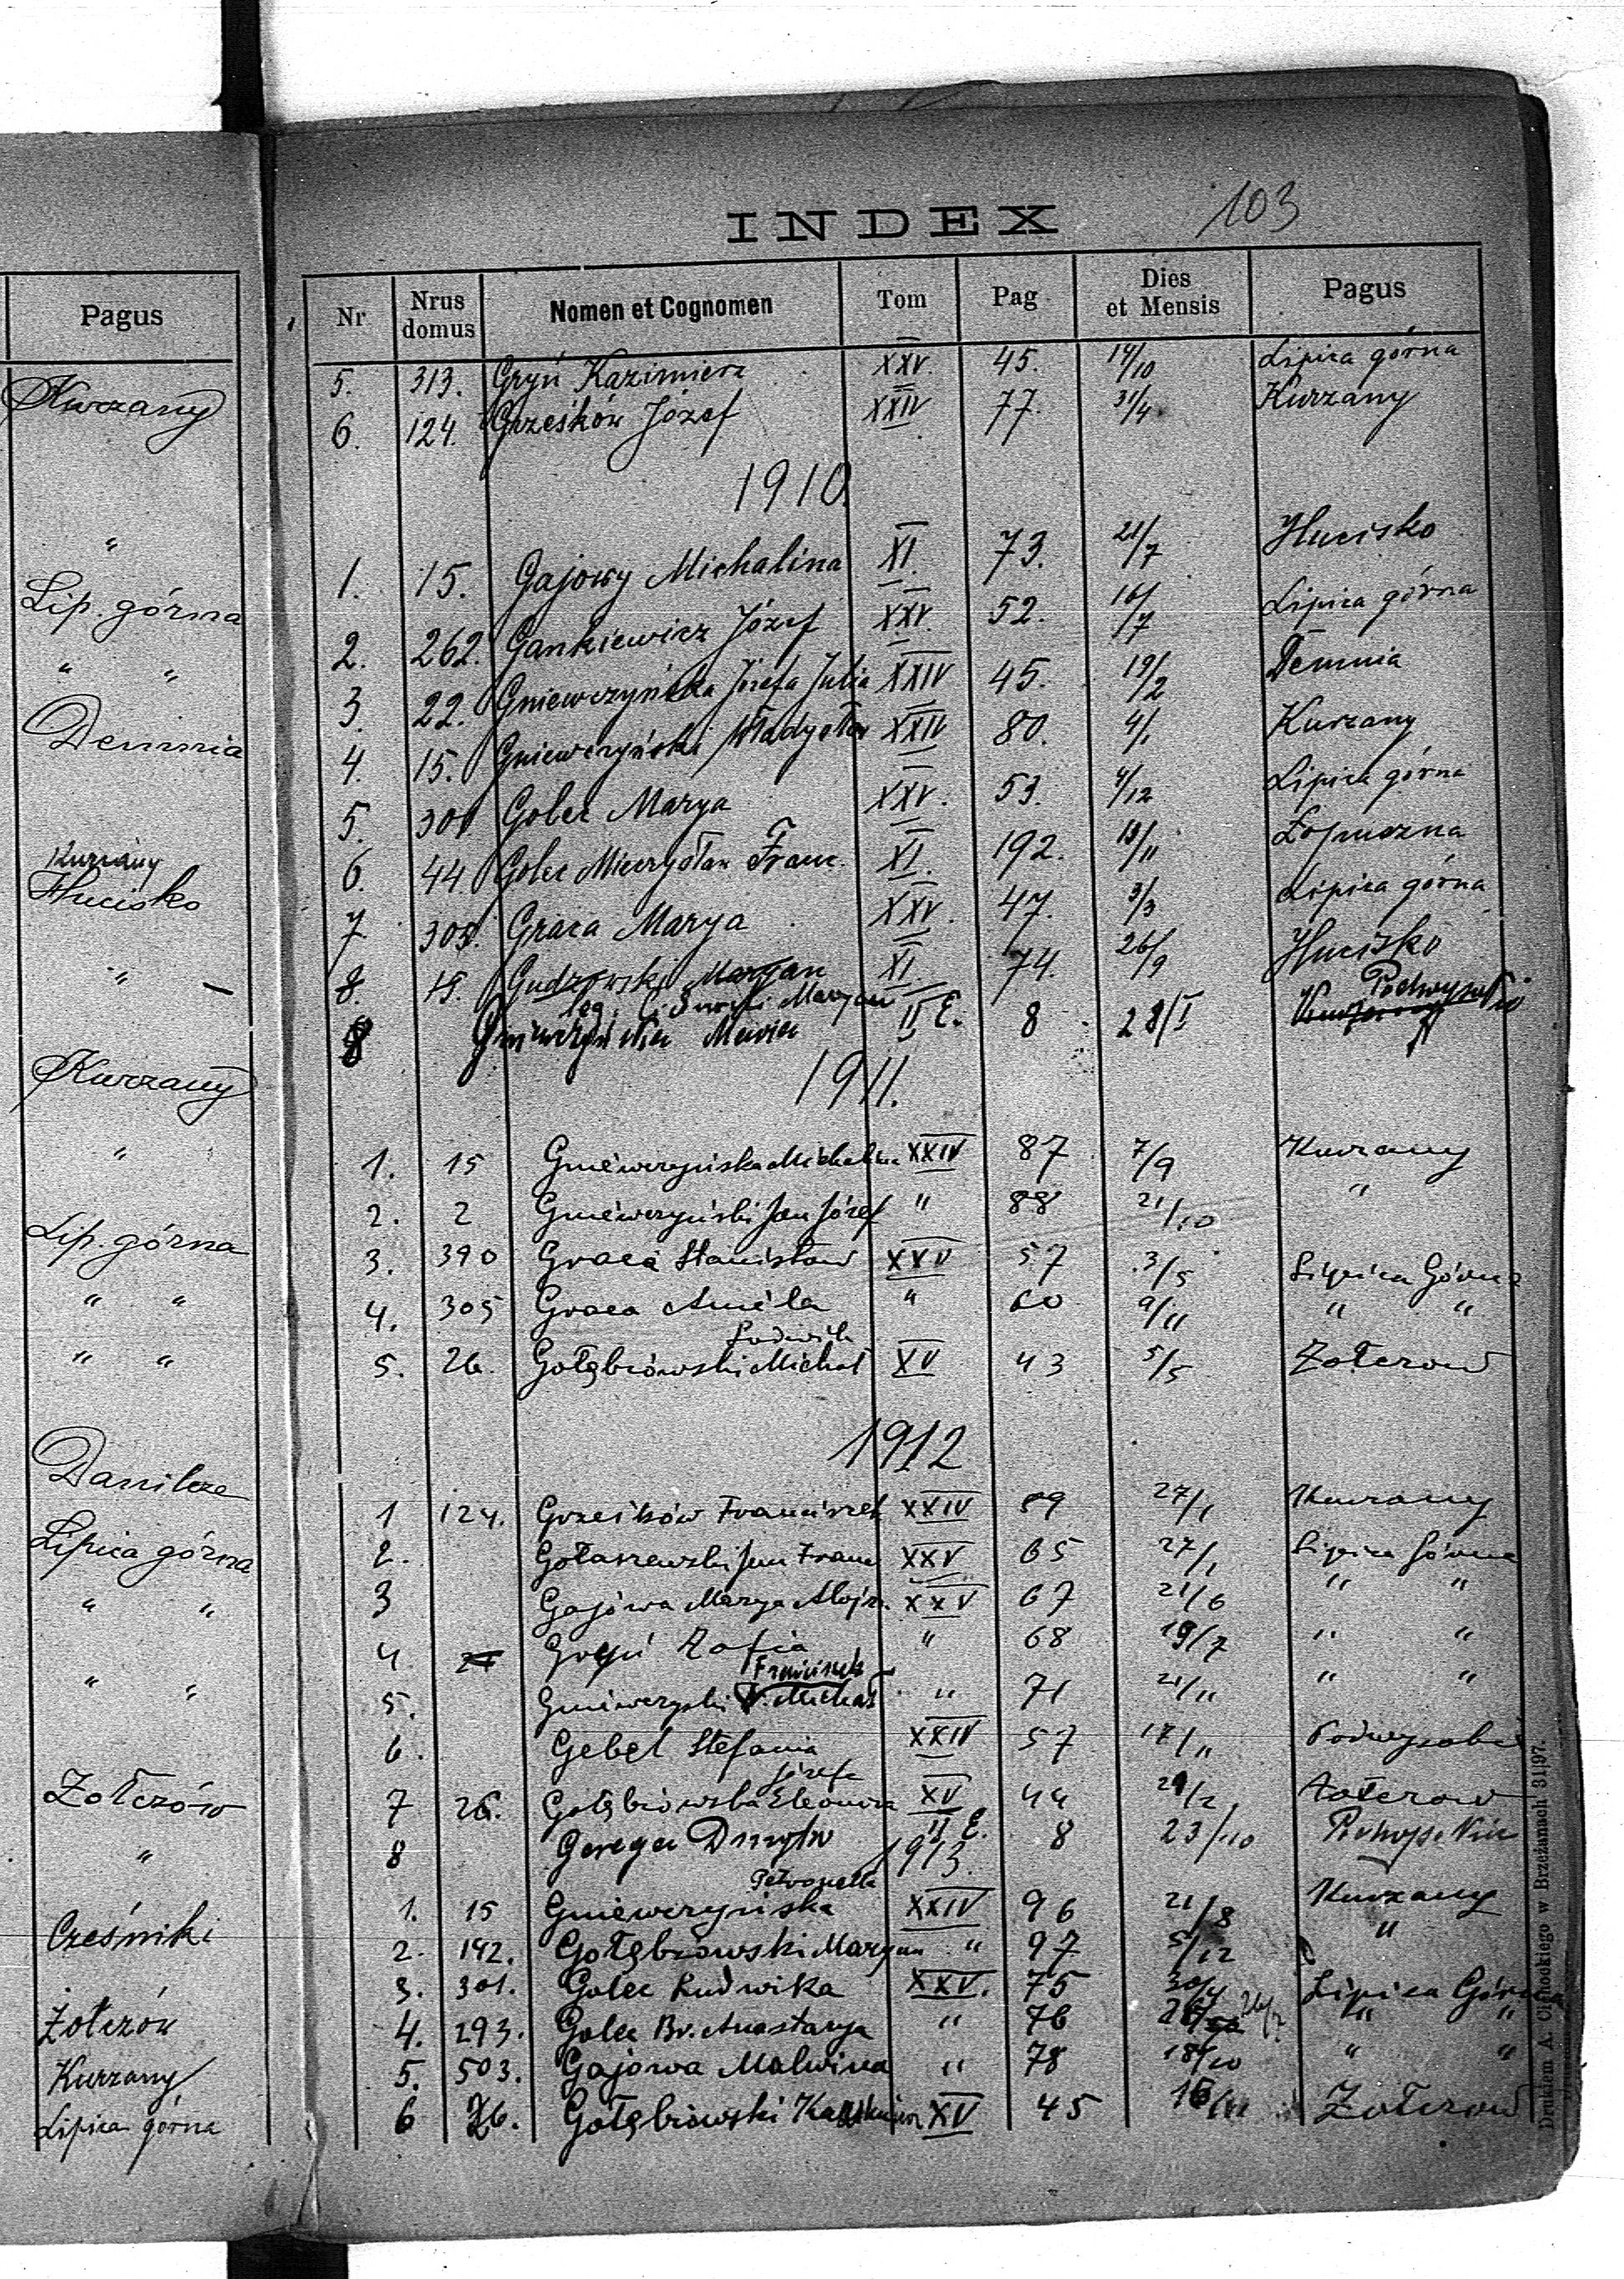 Pagus
Kurzany
"
Lip. górna
" "
Demnia
Kurzany
Hucisko
" –
Kurzany
"
Lip. górna
" "
" "
Danilcze
Lipica górna
" "
" "
Żołczów
"
Cześniki
Żołczów
Kurzany
Lipica górna
103
INDEX
Nr Nrus domus Nomen et Cognomen Tom Pag Dies et Mensis Pagus
5. 313. Gryń Kazimiera XXV. 45. 14/10 Lipica górna
6. 124. Grześków Józef XXIV 77. 31/4 Kurzany
1910.
1. 15. Gajowy Michalina XI. 73. 21/7 Hucisko
2. 262. Gankiewicz Józef XXV 52. 16/7 Lipica górna
3. 22. Gniewczyńska Józefa Julia XXIV 45. 19/2 Demnia
4. 15. Gniewczyński Władysław XXIV 80. 4/1 Kurzany
5. 301 Golec Marya XXV. 53. 4/12 Lipica górna
6. 44 Golec Mieczysław Franc. XI. 192. 13/11 Łopuszna
7 305. Graca Marya XXV. 47. 3/3 Lipica górna
8. 15. Gudzowski Maryan XI. 74. 26/9 Hucisko
leg. Maryan
8 Gniewczyńska Maria II E. 8 28/I Podwysokie
1911.
1. 15 Gniewczyńska Michalina XXIV 87 7/9 Kurzany
2. 2 Gniewczyński Jan Józef " 88 21/10 "
3. 390 Graca Stanisław XXV 57 3/5 Lipica Górna
4. 305 Graca Aniela " 60 9/11 " "
Ludwik
5. 26. Gołębiowski Michał XV 43 5/5 Żołczow
1912
1 124. Grześków Franciszek XXIV 89 27/1 Kurzany
2. Gołaszewski Jan Franc XXV 65 27/1 Lipica Górna
3 Gajowa Marya Alojz. XXV 67 21/6 " "
4. Gryń Zofia " 68 19/7 " "
Franciszek
5. Gniewczyski Michał " 71 21/11 " "
6. Gebel Stefania XXIV 57 17/11 Podwysokie
Józefa
7 26. Gołębiowska Eleonora XV 44 29/2 Żołczow
8 Gerega Dmytro II E. 8 23/10
1913.
Petronella
1. 15 Gniewczyńska XXIV 96 21/8 Kurzany
2. 142. Gołębiowski Maryan " 97 5/12 "
3. 301. Golec Ludwika XXV. 75 30/4 Lipica Górna
4. 293. Golec Br. Anastazya " 76 26/7 " "
5. 503. Gajowa Malwina " 78 18/10 " "
6 26. Gołębiowski Kazimierz XV 45 15/11 Żołczow
Drukiem A. Olchockiego w Brzeżanach 31|97.